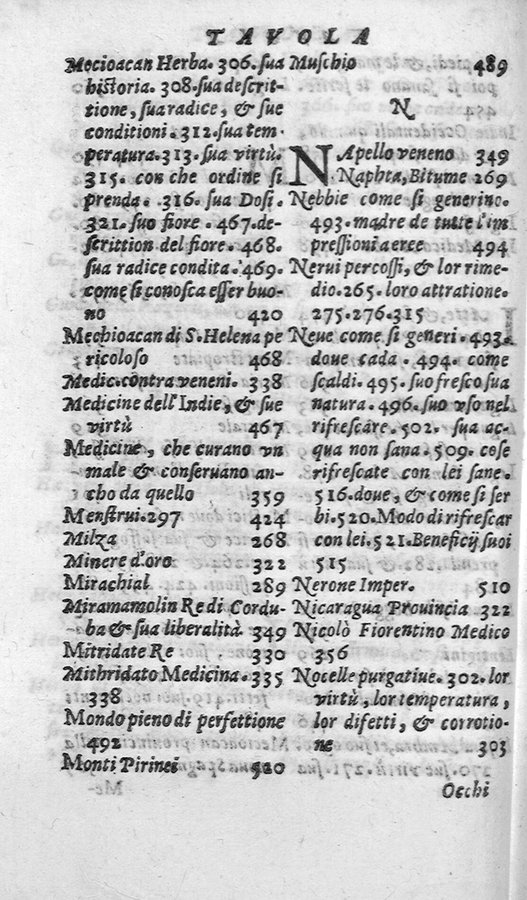 TAVOLA
Mecioacan Herba. 306. sua
historia. 308. sua descrit-
tione, sua radice, & sue
conditioni. 312. sua tem-
peratura. 313. sua virtù.
315. con che ordine si
prenda. 316. sua Dosi.
321. suo fiore. 467. de-
scrittion del fiore. 468.
sua radice condita. 469.
come si conosca esser buo-
no 420
Mechioacan di S. Helena pe
ricoloso 468
Medic. contra veneni. 338
Medicine dell'Indie, & sue
virtù 467
Medicine, che curano vn
male & conseruano an-
cho da quello 359
Menstrui. 297 424
Milza 268
Minere d'oro 322
Mirachial 289
Miramamolin Re di Cordu-
ba & sua liberalità 349
Mitridate Re 330
Mithridato Medicina. 335
338
Mondo pieno di perfettione
492
Monti Pirinei 520
Muschio 489
N
NApello veneno 349
Naphta, Bitume 269
Nebbie come si generino.
493. madre de tutte l'im
pressioni aeree 494
Nerui percossi, & lor rime-
dio. 265. loro attratione.
275. 276. 315
Neue come si generi. 493.
doue cada. 494. come
scaldi. 495. suo fresco sua
natura. 496. suo vso nel
rifrescare. 502. sua ac-
qua non sana. 509. cose
rifrescate con lei sane.
516. doue, & come si ser
bi. 520. Modo di rifrescar
con lei. 521. Beneficij suoi
515
Nerone Imper. 510
Nicaragua Prouincia 322
Nicolò Fiorentino Medico
356
Nocelle purgatiue. 302. lor
virtù, lor temperatura,
lor difetti, & corrotio-
ne 303
Occhi